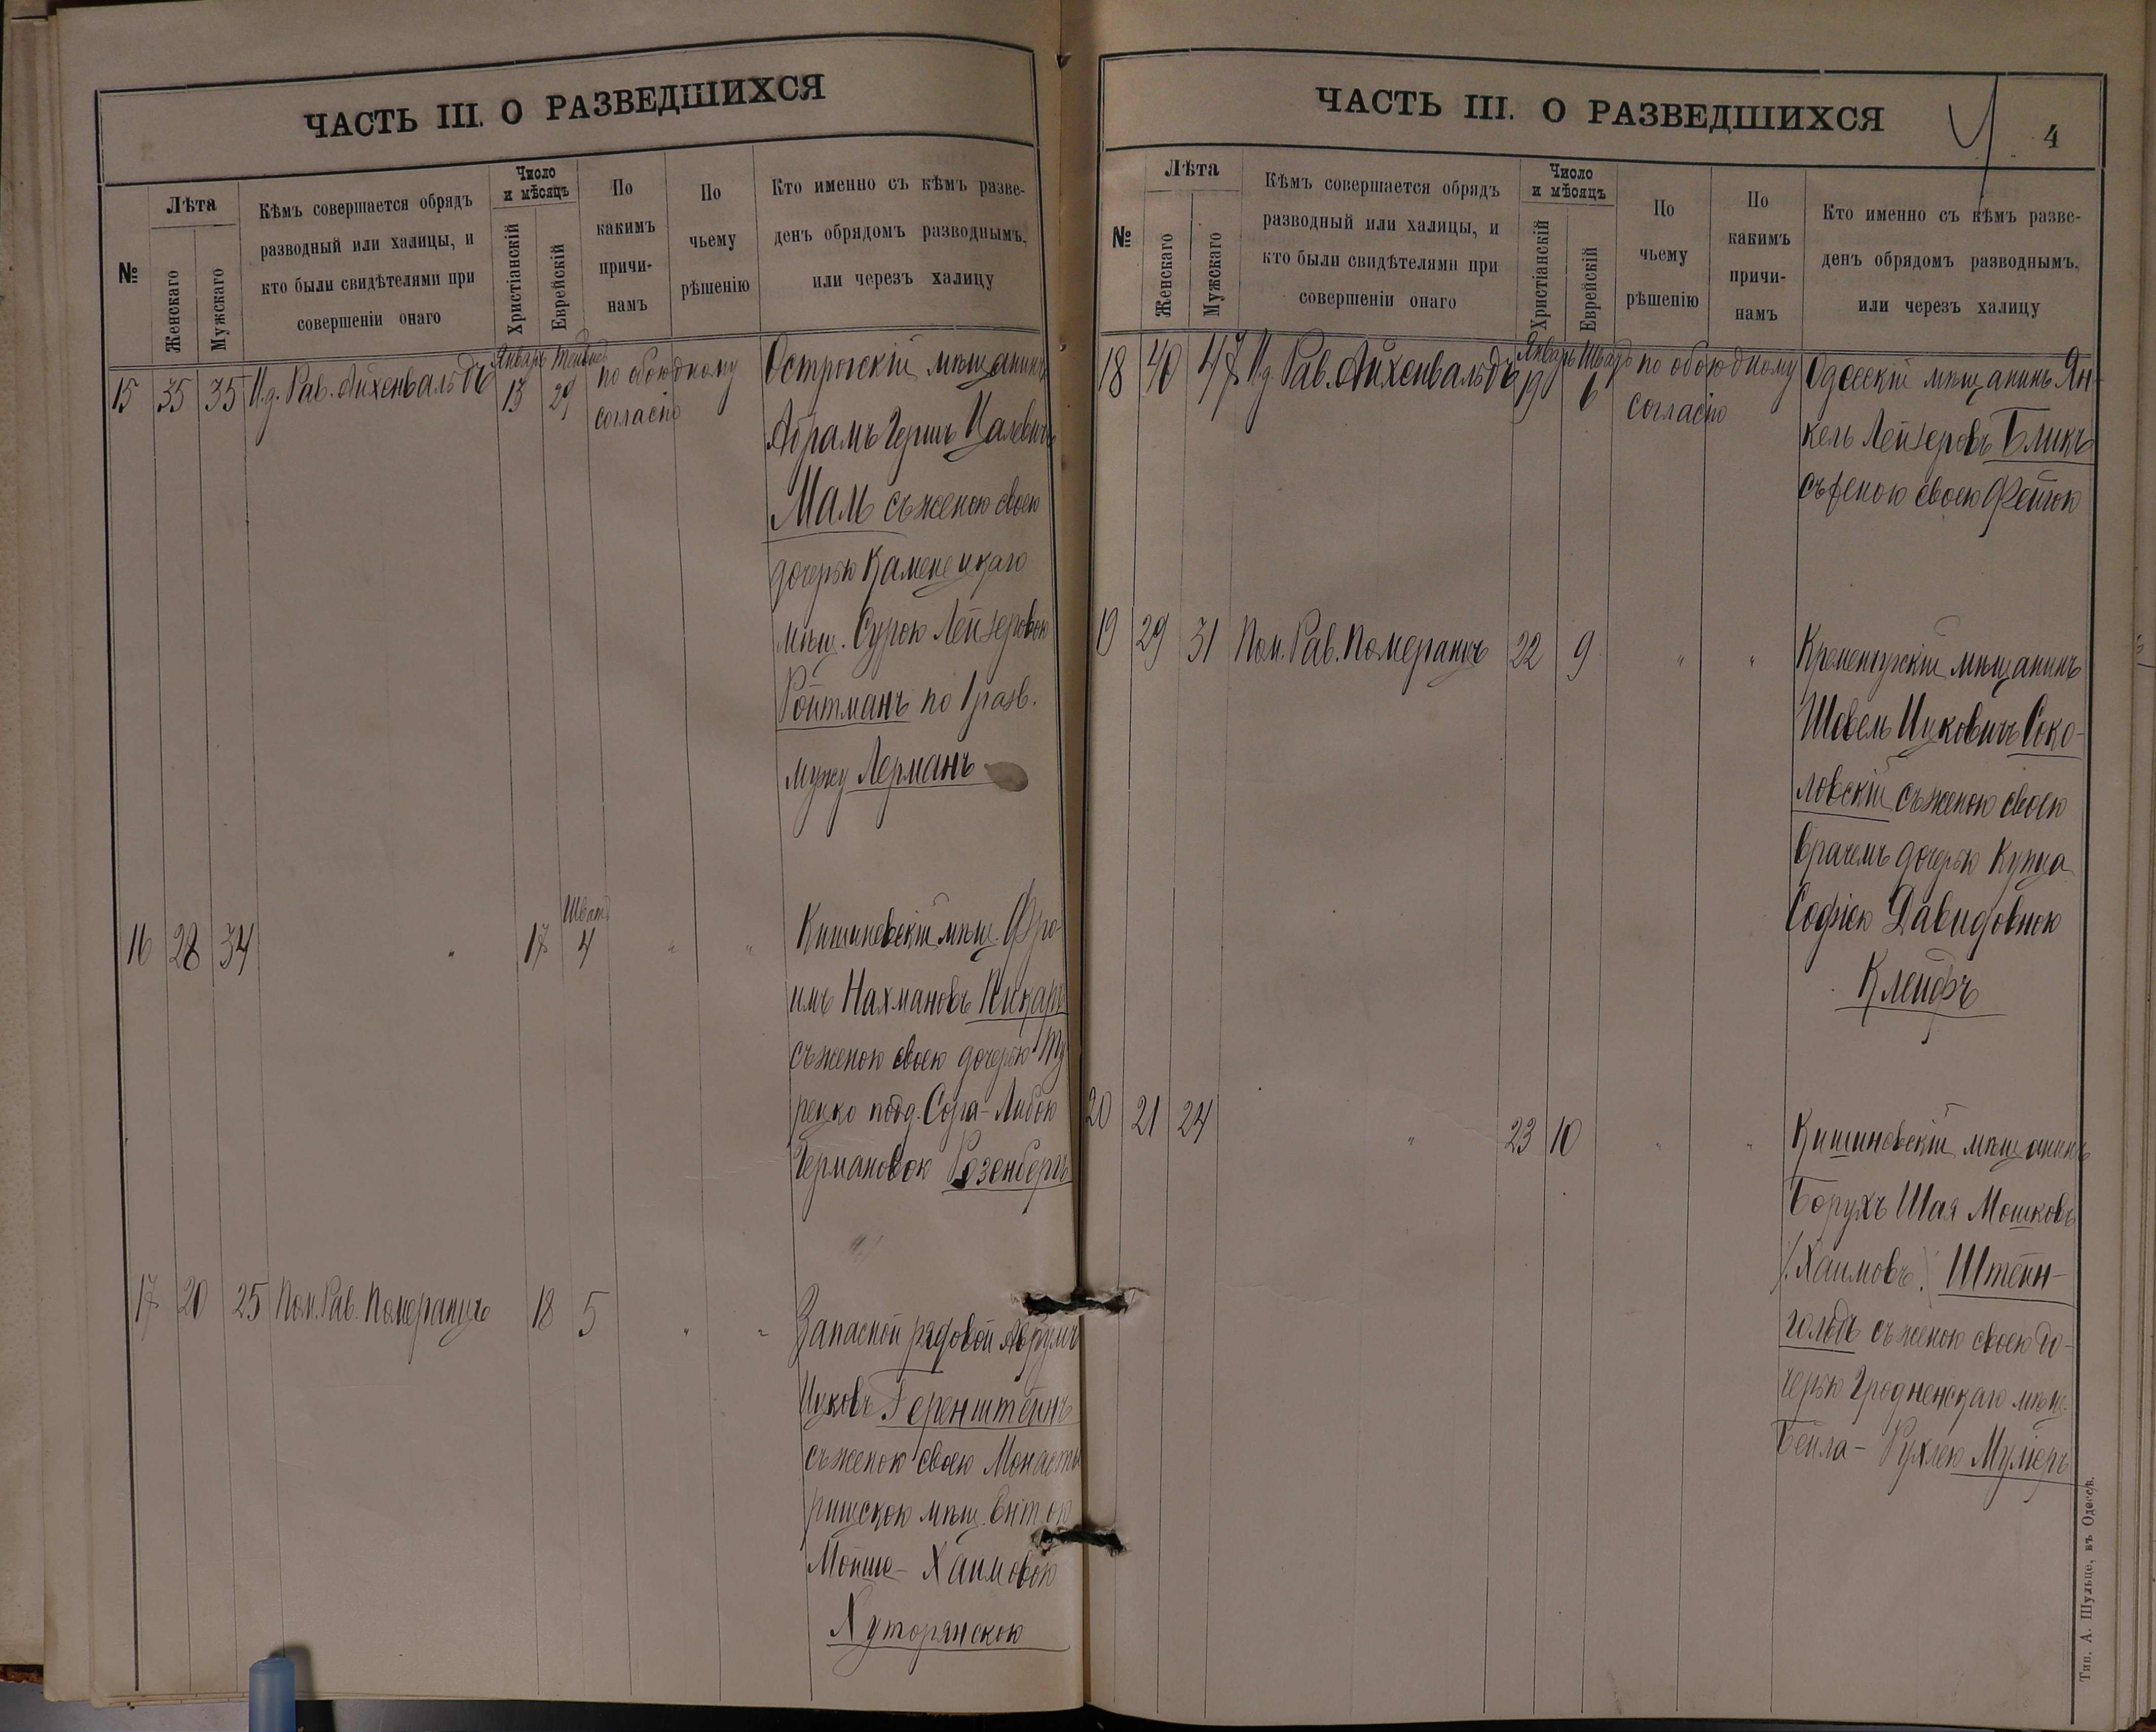 ЧАСТЬ III. О РАЗВЕДШИХСЯ
№
Лѣта
Женскаго
Мужскаго
Кѣмъ совершается обрядъ
разводный или халицы, и
кто были свидѣтелями при
совершеніи онаго
Число
и мѣсяцъ
Христіанскій
Еврейскій
По
какимъ
причи-
намъ
По
чьему
рѣшенію
Кто именно съ кѣмъ разве-
денъ обрядомъ разводнымъ,
или черезъ халицу
15 35 35 И.д. Рав. Айхенвальдъ
Январь 13
29
по обоюдному
согласію
Острогскій мѣщанинъ
Абрамъ Гершъ Цалевичъ
Маль съ женою своею
дочерью Каменецкаго
мѣщ. Сурою Лейзеровою
Ройтманъ по 1 разв.
мужу Лерманъ
16 28 34 " 17
Шватъ
4 " "
Кишиневскій мѣщ. Фро-
имъ Нахмановъ Пикаръ
съ женою своею дочерью Ту
рецко подд. Сора-Либою
Германовою Розенбергъ
17 20 25 Пом. Рав. Померанцъ 18 5 " "
Запасной рядовой Аврумъ
Ицковъ Геренштейнъ
съ женою своею Монасты
рищскою мѣщ. Ентою
Мойше-Хаимовою
Хуторянскою
ЧАСТЬ III. О РАЗВЕДШИХСЯ
4
№
Лѣта
Женскаго
Мужскаго
Кѣмъ совершается обрядъ
разводный или халицы, и
кто были свидѣтелями при
совершеніи онаго
Число
и мѣсяцъ
Христіанскій
Еврейскій
По
чьему
рѣшенію
По
какимъ
причи-
намъ
Кто именно съ кѣмъ разве-
денъ обрядомъ разводнымъ,
или черезъ халицу
18 40 47 И.д. Рав. Айхенвальдъ
Январь 19
Шватъ 6
по обоюдному
согласію
Одесскій мѣщанинъ Ян-
кель Лейзеровъ Бликъ
съ женою своею Фейгою
19 29 31 Пом. Рав. Померанцъ 22 9 " "
Кременчугскій мѣщанинъ
Шовель Ицковичъ Соко-
ловскій съ женою своею
врачемъ дочерью Купца
Софіею Давидовною
Клейфъ
20 21 24 " 23 10 " "
Кишиневскій мѣщанинъ
Борухъ Шая Мошковъ
/. Хаимовъ./ Штейн-
гольдъ съ женою своею до-
черью Гродненскаго мѣщ.
Бейла-Рухлею Мулеръ
Тип. А. Шульце, въ Одессѣ.